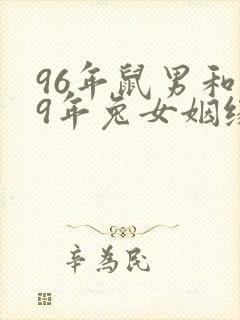 96年鼠男和
9年兔女姻缘
辛为民